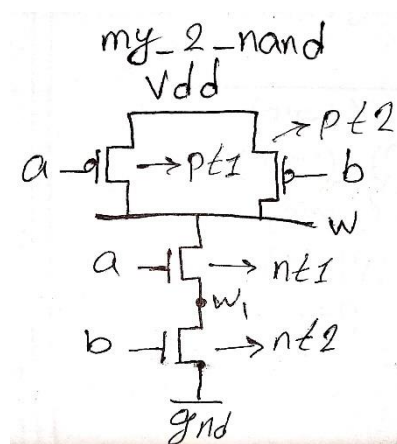 my_2_nand
Vdd
pt2
a pt1 b
w
a nt1
w1
b nt2
gnd